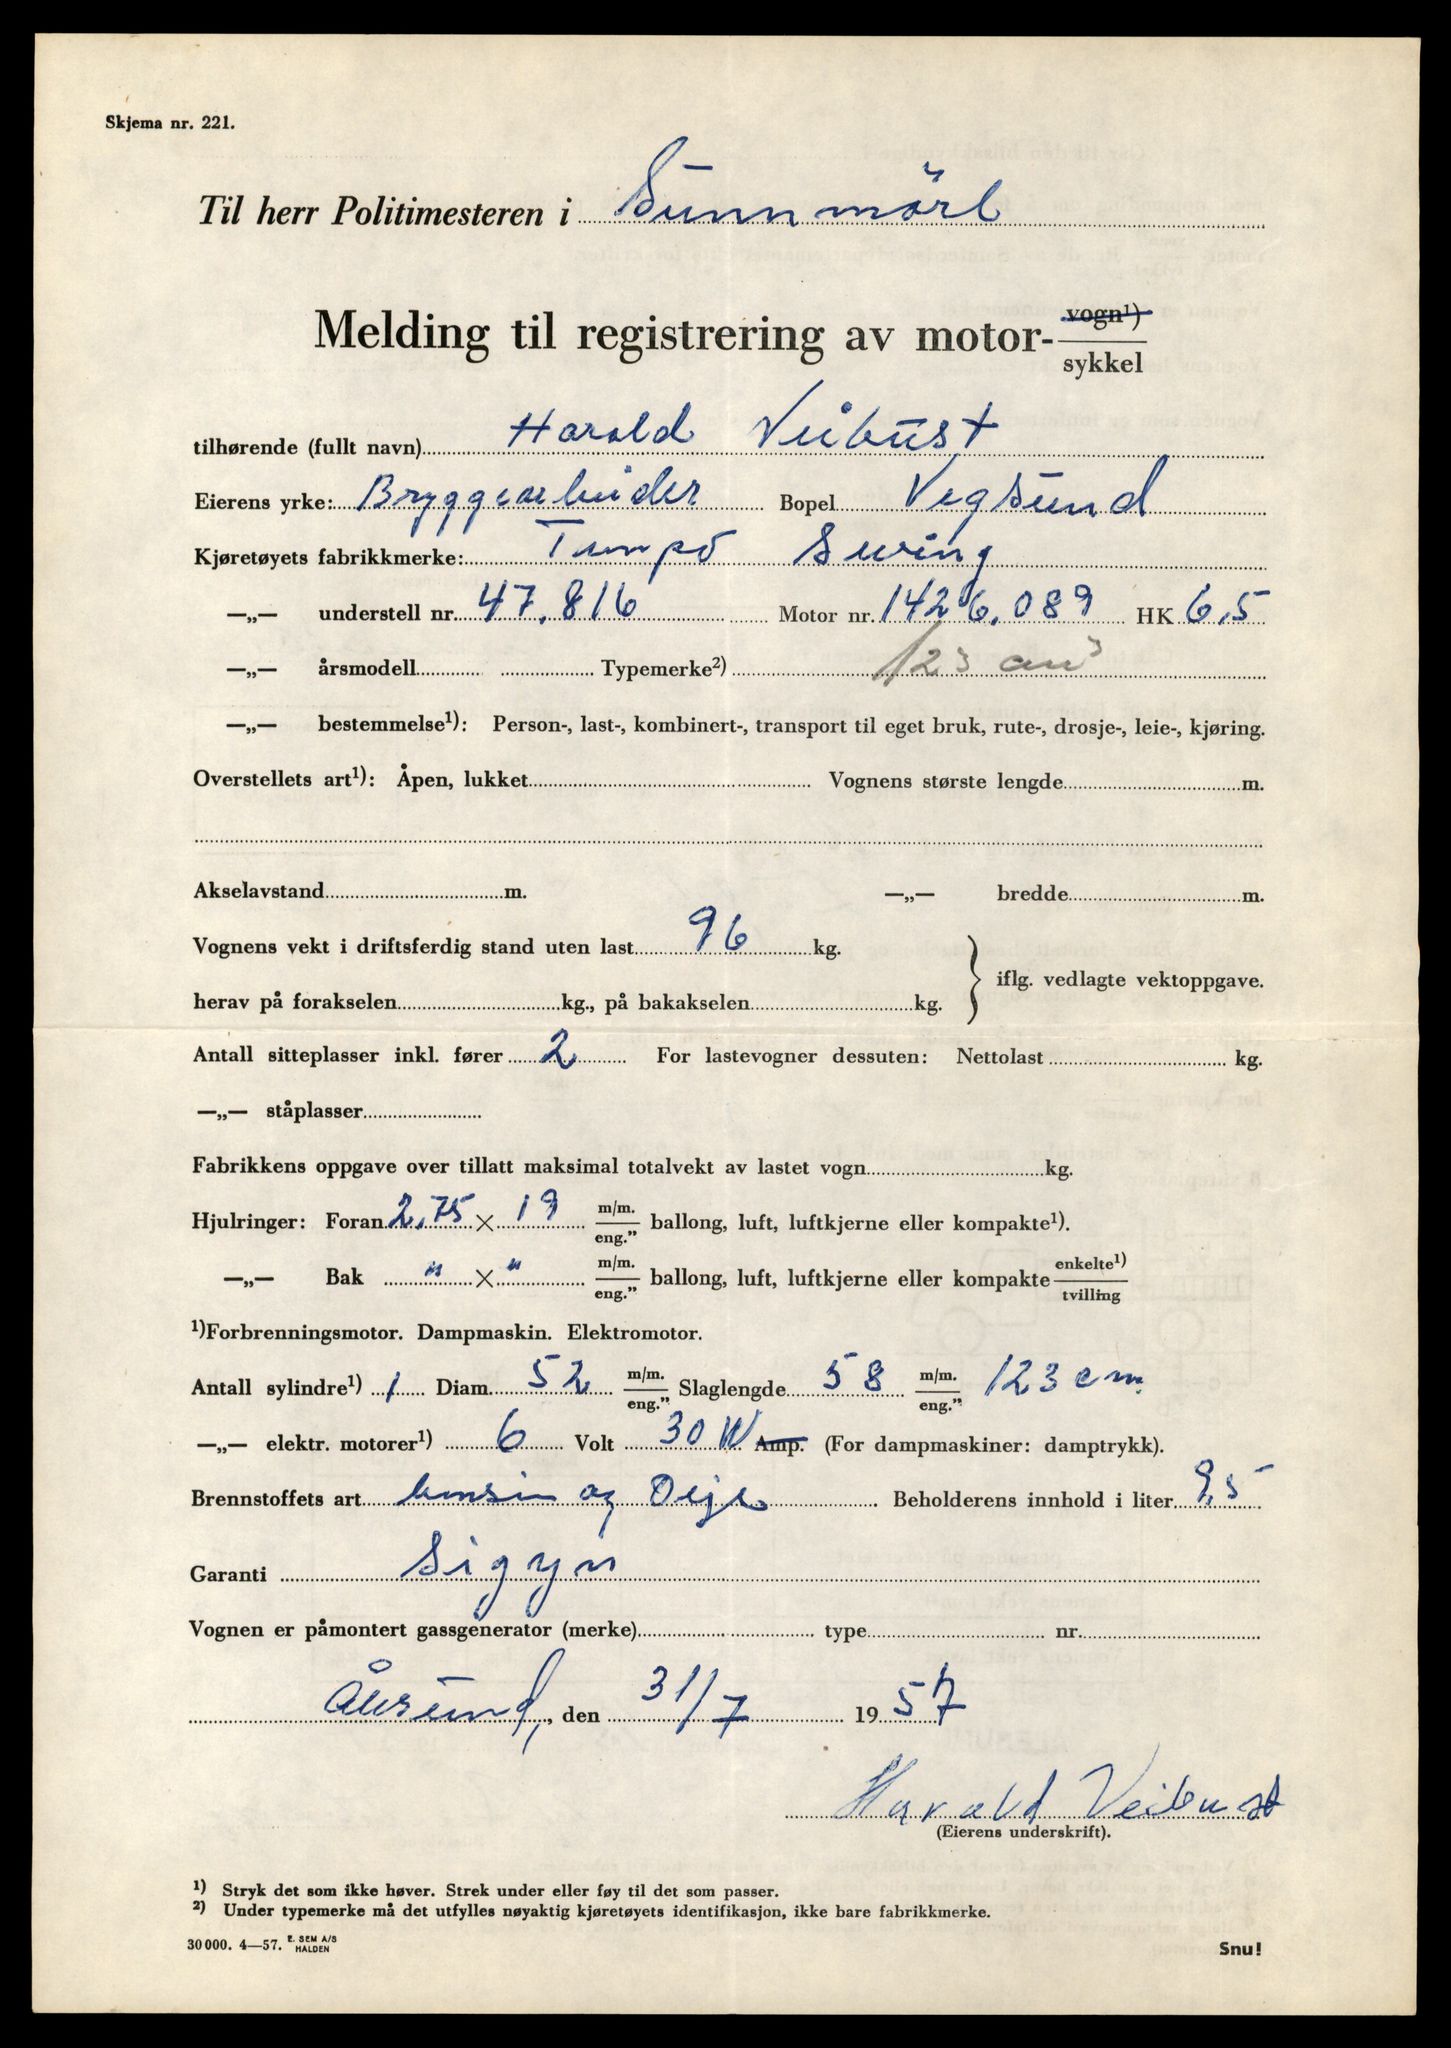 Skjema nr. 221.
Til herr Politimesteren i Sunnmöre
Melding til registrering av motor- vogn¹) sykkel
tilhørende (fullt navn) Harald Veibust
Eierens yrke: Bryggearbeider Bopel Vegsund
Kjøretøyets fabrikkmerke: Tempo Swing
—„— understell nr. 47.816 Motor nr. 1426.089 HK 6,5
—„— årsmodell Typemerke²) 123 cm³
—„— bestemmelse¹): Person-, last-, kombinert-, transport til eget bruk, rute-, drosje-, leie-, kjøring.
Overstellets art¹): Åpen, lukket Vognens største lengde m.
Akselavstand m. —„— bredde m.
Vognens vekt i driftsferdig stand uten last 96 kg.
herav på forakselen kg., på bakakselen kg. } iflg. vedlagte vektoppgave.
Antall sitteplasser inkl. fører 2 For lastevogner dessuten: Nettolast kg.
—„— ståplasser
Fabrikkens oppgave over tillatt maksimal totalvekt av lastet vogn kg.
Hjulringer: Foran 2,75 × 19 m/m. eng.” ballong, luft, luftkjerne eller kompakte¹).
—„— Bak " × " m/m. eng.” ballong, luft, luftkjerne eller kompakte enkelte¹) tvilling
¹)Forbrenningsmotor. Dampmaskin. Elektromotor.
Antall sylindre¹) 1 Diam. 52 m/m. eng.” Slaglengde 58 m/m. eng.” 123 cm.
—„— elektr. motorer¹) 6 Volt 30 W Amp. (For dampmaskiner: damptrykk).
Brennstoffets art bensin og Olje Beholderens innhold i liter 9,5
Garanti Sigyn
Vognen er påmontert gassgenerator (merke) type nr.
Ålesund, den 31/7 1957
Harald Veibust
(Eierens underskrift).
¹) Stryk det som ikke høver. Strek under eller føy til det som passer.
²) Under typemerke må det utfylles nøyaktig kjøretøyets identifikasjon, ikke bare fabrikkmerke.
30 000. 4—57. E. SEM A/S HALDEN Snu!